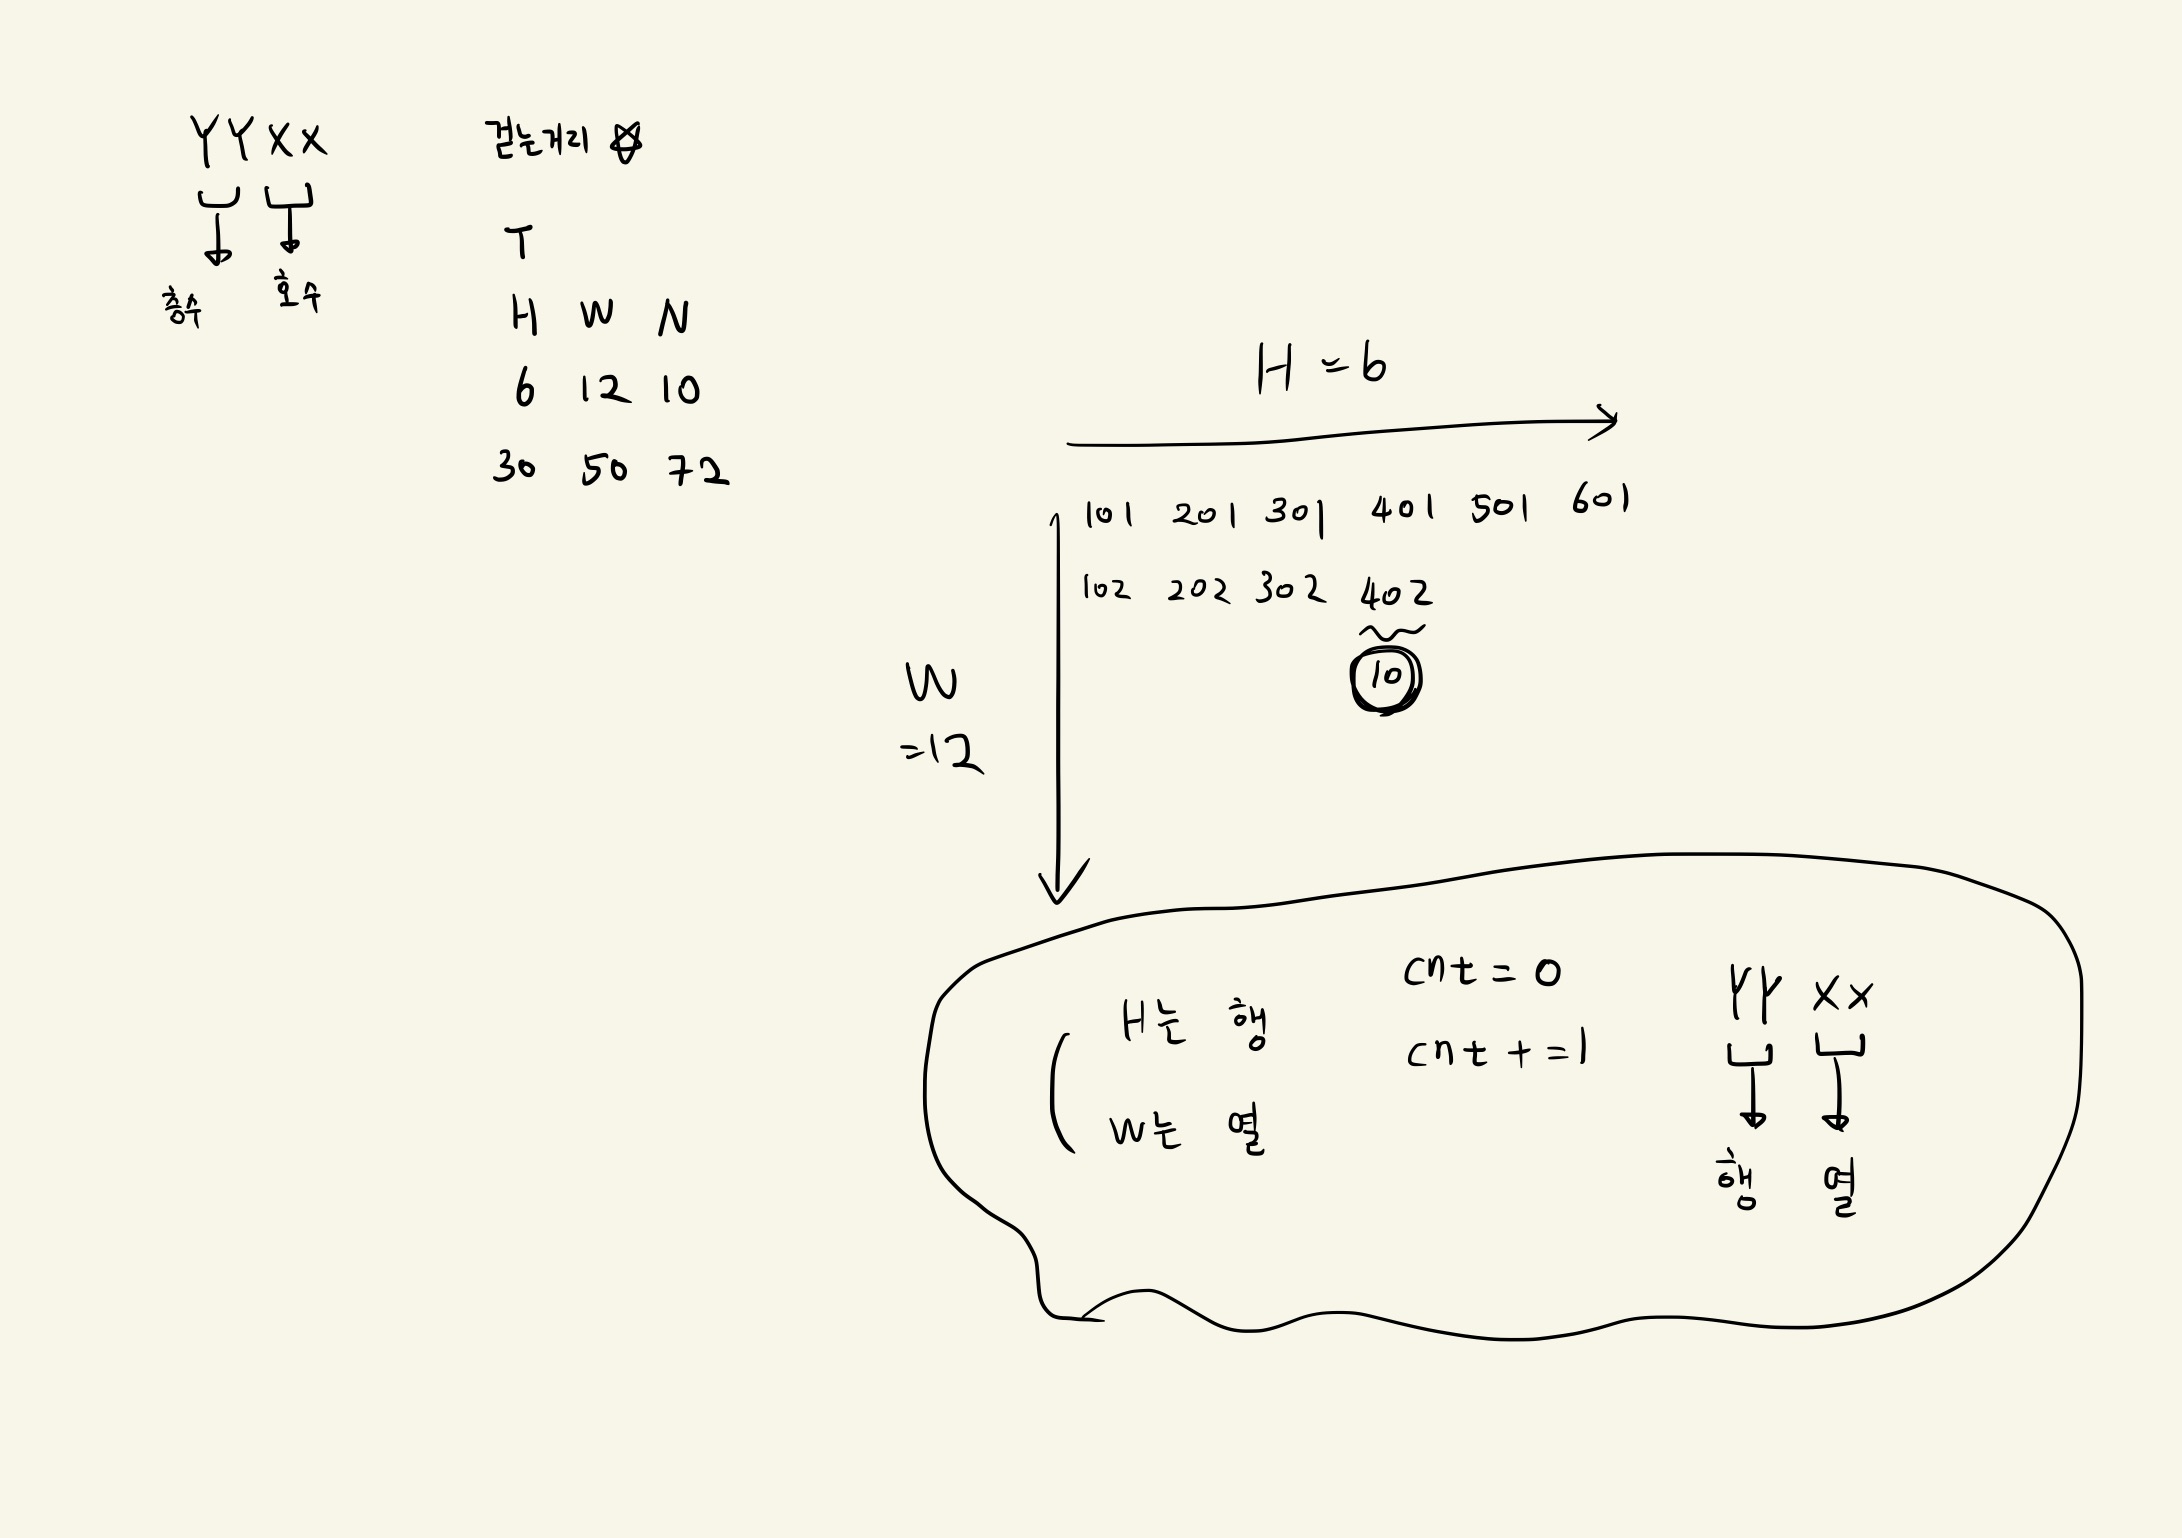 YYXX
층수 호수
걷는거리
T
H W N
6 12 10
30 50 72
H = 6
101 201 301 401 501 601
102 202 302 402
10
W
=12
H는 행
W는 열
cnt = 0
cnt +=1
YY XX
행 열